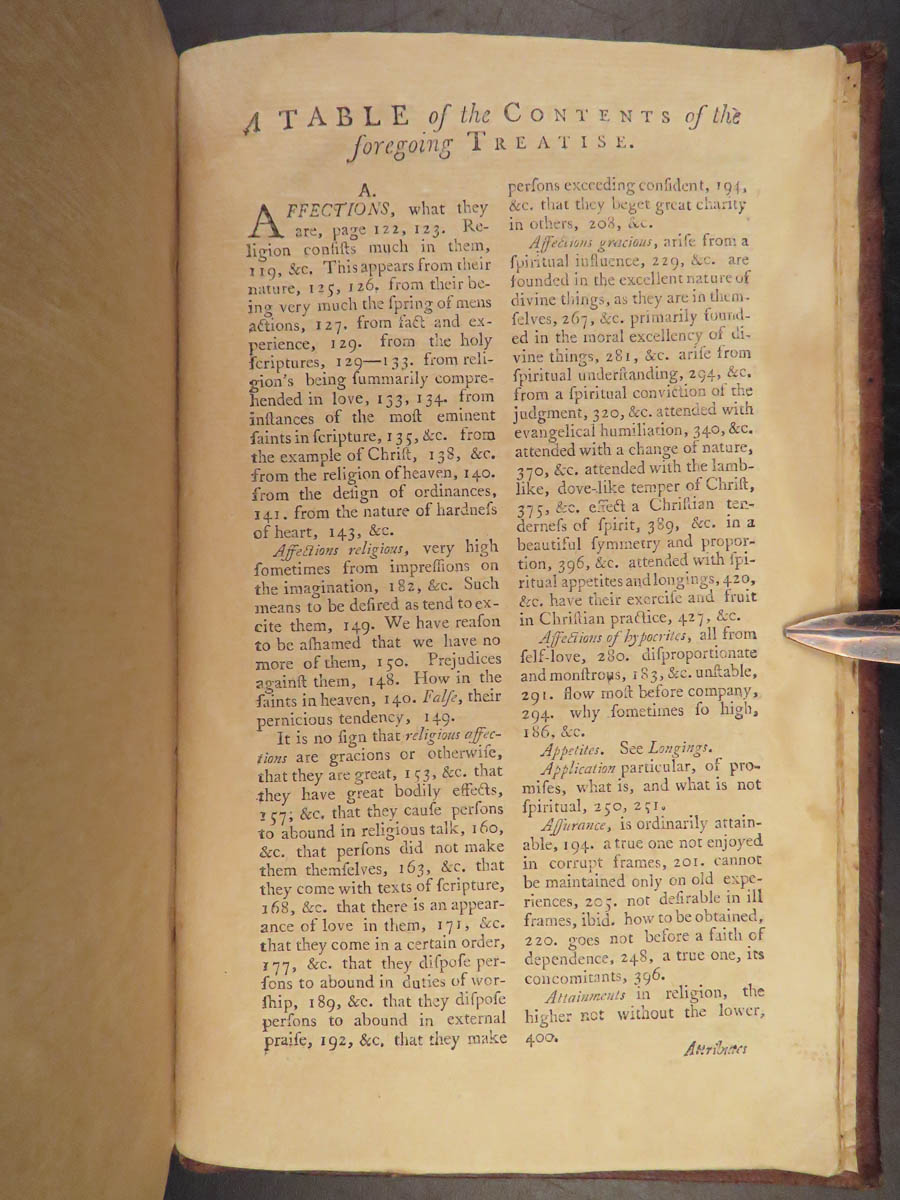 A TABLE of the CONTENTS of the
foregoing TREATISE.
A.
AFFECTIONS, what they
are, page 122, 123. Re-
ligion conſiſts much in them,
119, &c. This appears from their
nature, 125, 126. from their be-
ing very much the ſpring of mens
actions, 127. from fact and ex-
perience, 129. from the holy
ſcriptures, 129—133. from reli-
gion's being ſummarily compre-
hended in love, 133, 134. from
inſtances of the moſt eminent
ſaints in ſcripture, 135, &c. from
the example of Chriſt, 138, &c.
from the religion of heaven, 140.
from the deſign of ordinances,
141. from the nature of hardneſs
of heart, 143, &c.
Affections religious, very high
ſometimes from impreſſions on
the imagination, 182, &c. Such
means to be deſired as tend to ex-
cite them, 149. We have reaſon
to be aſhamed that we have no
more of them, 150. Prejudices
againſt them, 148. How in the
ſaints in heaven, 140. Falſe, their
pernicious tendency, 149.
It is no ſign that religious affec-
tions are gracions or otherwiſe,
that they are great, 153, &c. that
they have great bodily effects,
157; &c. that they cauſe perſons
to abound in religious talk, 160,
&c. that perſons did not make
them themſelves, 163, &c. that
they come with texts of ſcripture,
168, &c. that there is an appear-
ance of love in them, 171, &c.
that they come in a certain order,
177, &c. that they diſpoſe per-
ſons to abound in duties of wor-
ſhip, 189, &c. that they diſpoſe
perſons to abound in external
praiſe, 192, &c. that they make
perſons exceeding confident, 194,
&c. that they beget great charity
in others, 208, &c.
Affections gracious, ariſe from a
ſpiritual influence, 229, &c. are
founded in the excellent nature of
divine things, as they are in them-
ſelves, 267, &c. primarily found-
ed in the moral excellency of di-
vine things, 281, &c. ariſe from
ſpiritual underſtanding, 294, &c.
from a ſpiritual conviction of the
judgment, 320, &c. attended with
evangelical humiliation, 340, &c.
attended with a change of nature,
370, &c. attended with the lamb-
like, dove-like temper of Chriſt,
375, &c. effect a Chriſtian ten-
derneſs of ſpirit, 389, &c. in a
beautiful ſymmetry and propor-
tion, 396, &c. attended with ſpi-
ritual appetites and longings, 420,
&c. have their exerciſe and fruit
in Chriſtian practice, 427, &c.
Affections of hypocrites, all from
ſelf-love, 280. diſproportionate
and monſtrous, 183, &c. unſtable,
291. flow moſt before company,
294. why ſometimes ſo high,
186, &c.
Appetites. See Longings.
Application particular, of pro-
miſes, what is, and what is not
ſpiritual, 250, 251.
Aſſurance, is ordinarily attain-
able, 194. a true one not enjoyed
in corrupt frames, 201. cannot
be maintained only on old expe-
riences, 205. not deſirable in ill
frames, ibid. how to be obtained,
220. goes not before a faith of
dependence, 248, a true one, its
concomitants, 396.
Attainments in religion, the
higher not without the lower,
400.
Attributes